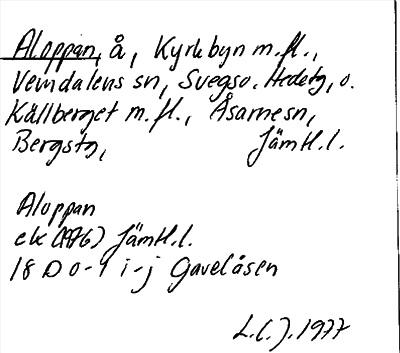 Aloppan, å, Kyrkbyn m.fl.,
Vemdalens sn, Svegso. Hedetg, o.
Källberget m.fl., Åsarne sn,
Bergstg, Jämtl.l.
Aloppan
ek (1976) Jämtl.l.
18 D 0-1 i-j Gavelåsen
1977